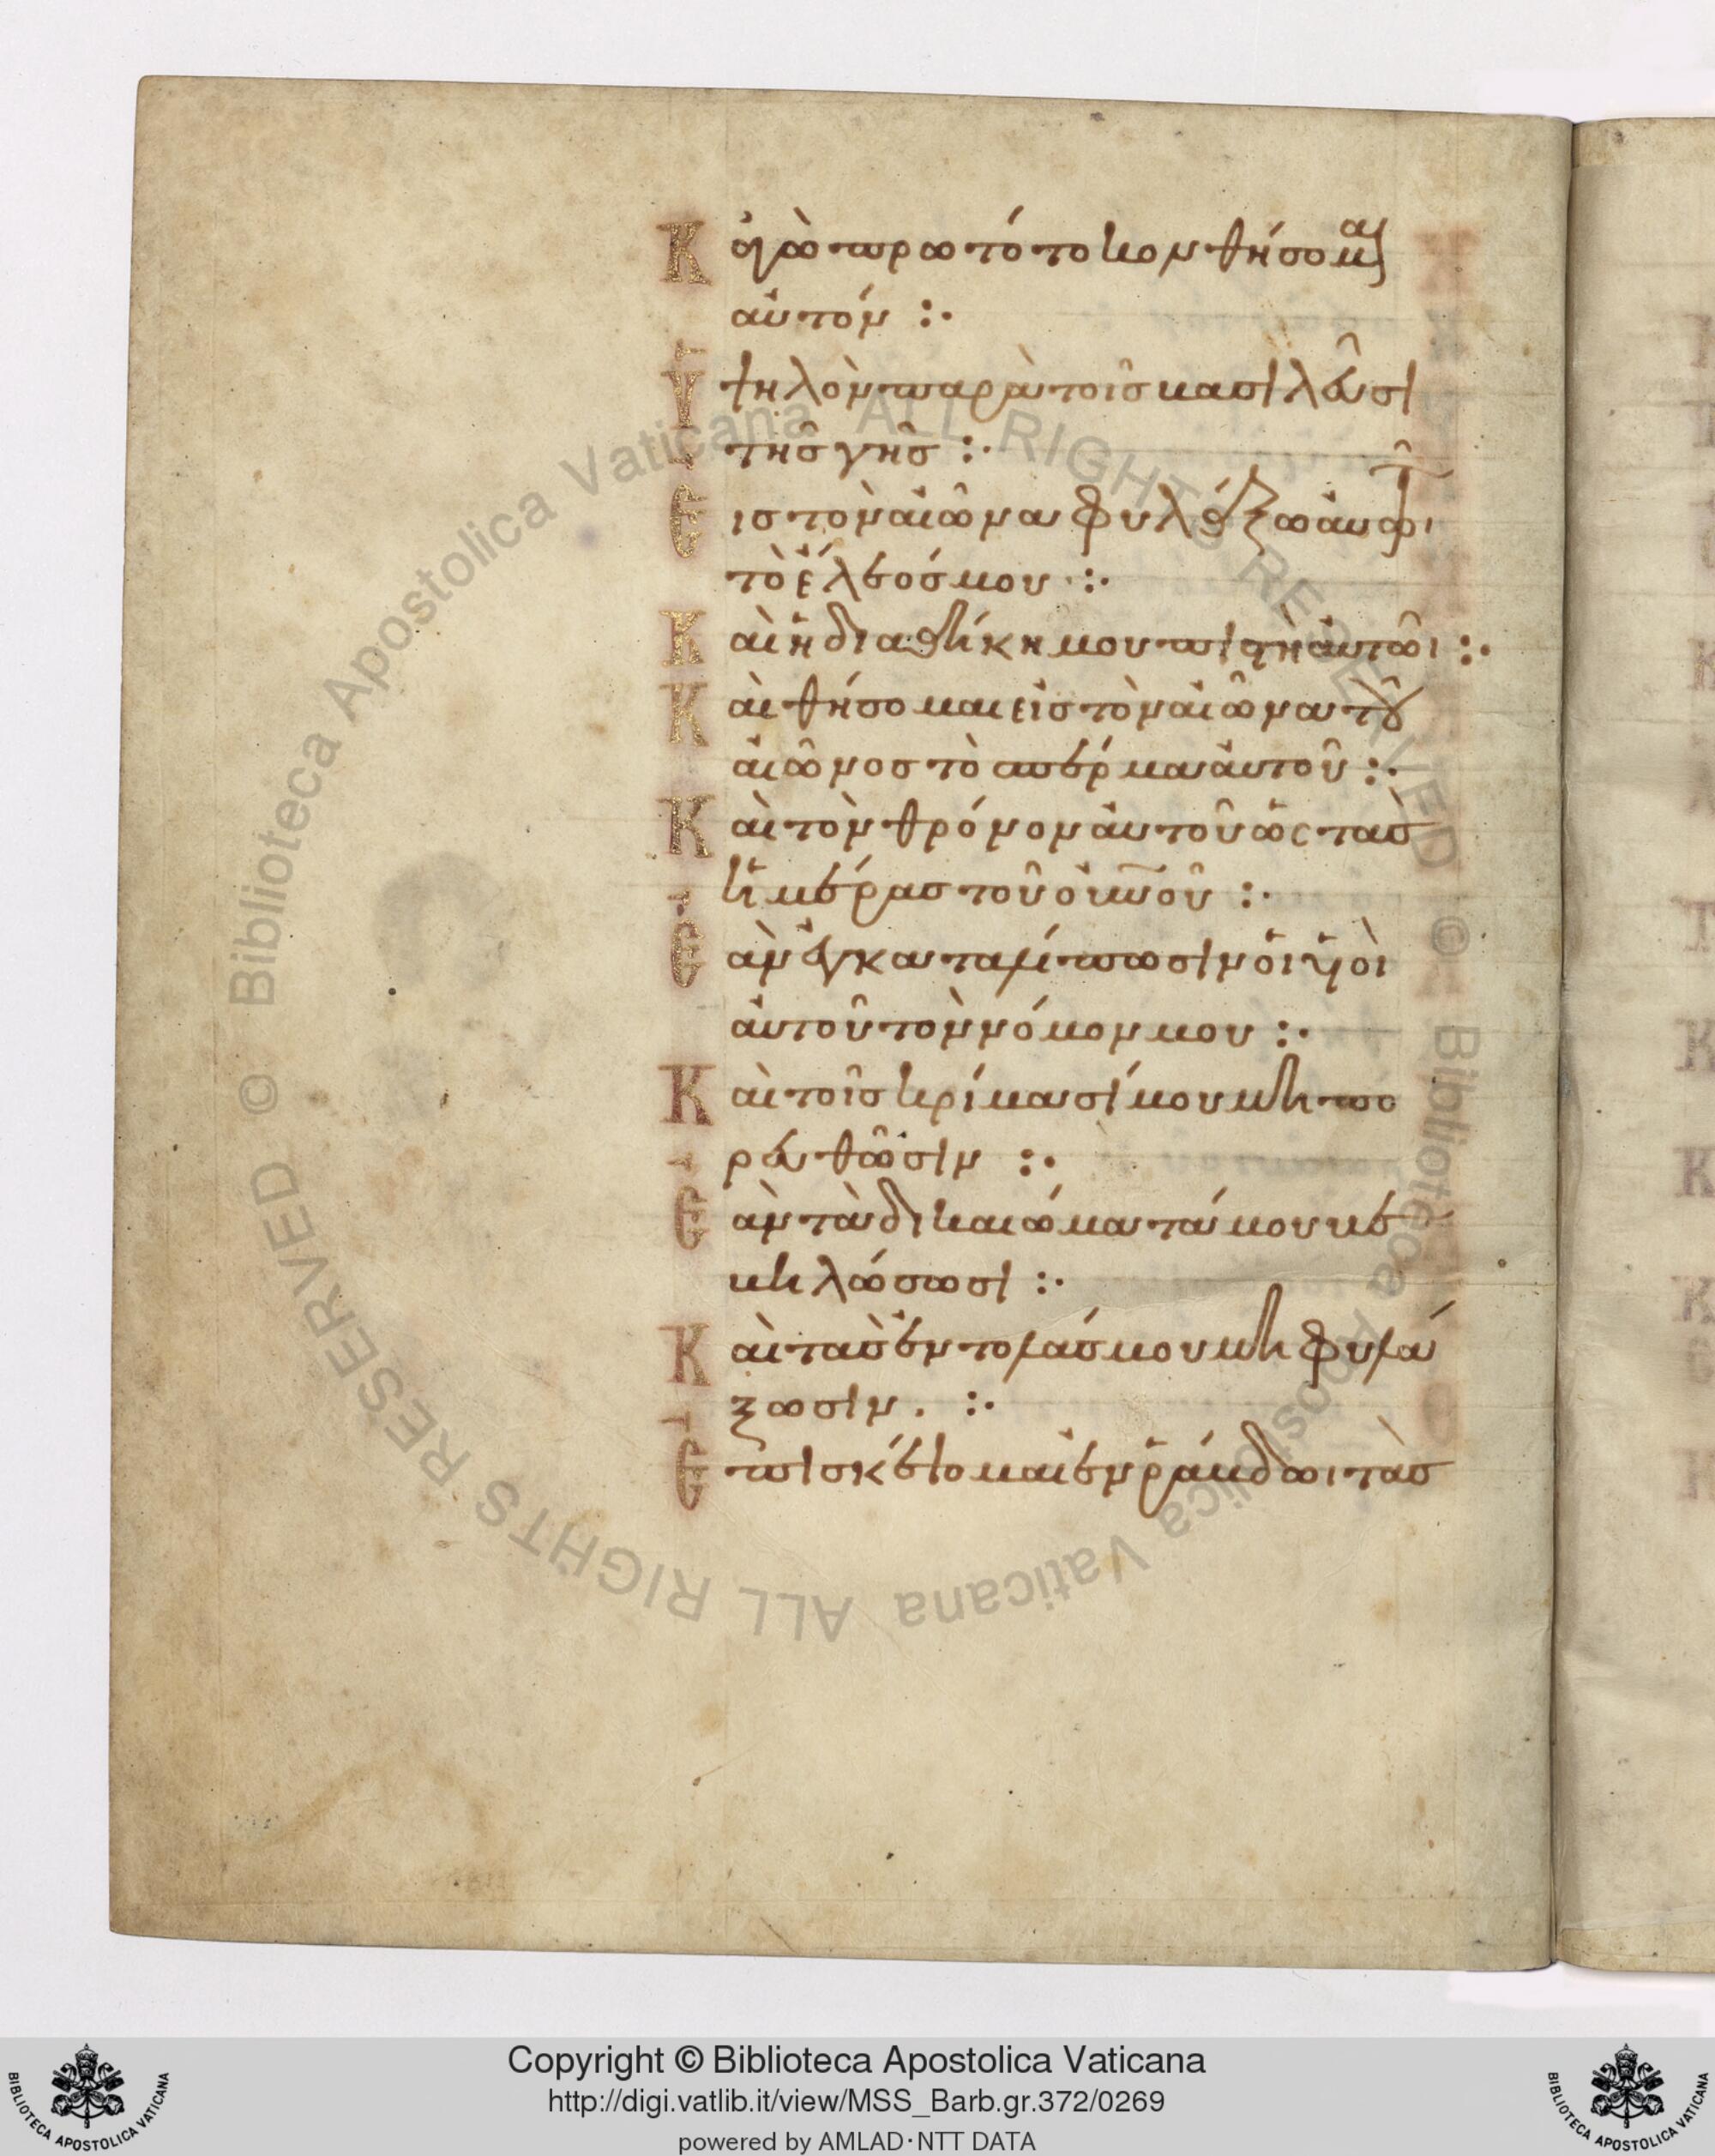 Κἀγὼ πρωτότοκον θήσομαι
αὐτόν :·
Ὑψηλὸν παρὰ τοῖς βασιλεῦσι
τῆς γῆς :·
Εἰς τὸν αἰῶνα φυλάξω αὐτῶι
τὸ ἔλεός μου :·
Καὶ ἡ διαθήκη μου πιστὴ αὐτῶι :·
Καὶ θήσομαι εἰς τὸν αἰῶνα τοῦ
αἰῶνος τὸ σπέρμα αὐτοῦ :·
Καὶ τὸν θρόνον αὐτοῦ ὡς τὰς
ἡμέρας τοῦ οὐνοῦ :·
Ἐὰν ἐγκαταλίπωσιν οἱ υἱοὶ
αὐτοῦ τὸν νόμον μου :·
Καὶ τοῖς κρίμασί μου μὴ πο
ρευθῶσιν :·
Ἐὰν τὰ δικαιώματά μου βε
βηλώσωσι :·
Καὶ τὰς ἐντολάς μου μὴ φυλά
ξωσιν . :·
Ἐπισκέψομαι ἐν ῥάβδωι τὰς
© Biblioteca Apostolica Vaticana ALL RIGHTS RESERVED © Biblioteca Apostolica Vaticana ALL RIGHTS RESERVED
Copyright © Biblioteca Apostolica Vaticana
http://digi.vatlib.it/view/MSS_Barb.gr.372/0269
powered by AMLAD·NTT DATA
BIBLIOTECA APOSTOLICA VATICANA
BIBLIOTECA APOSTOLICA VATICANA